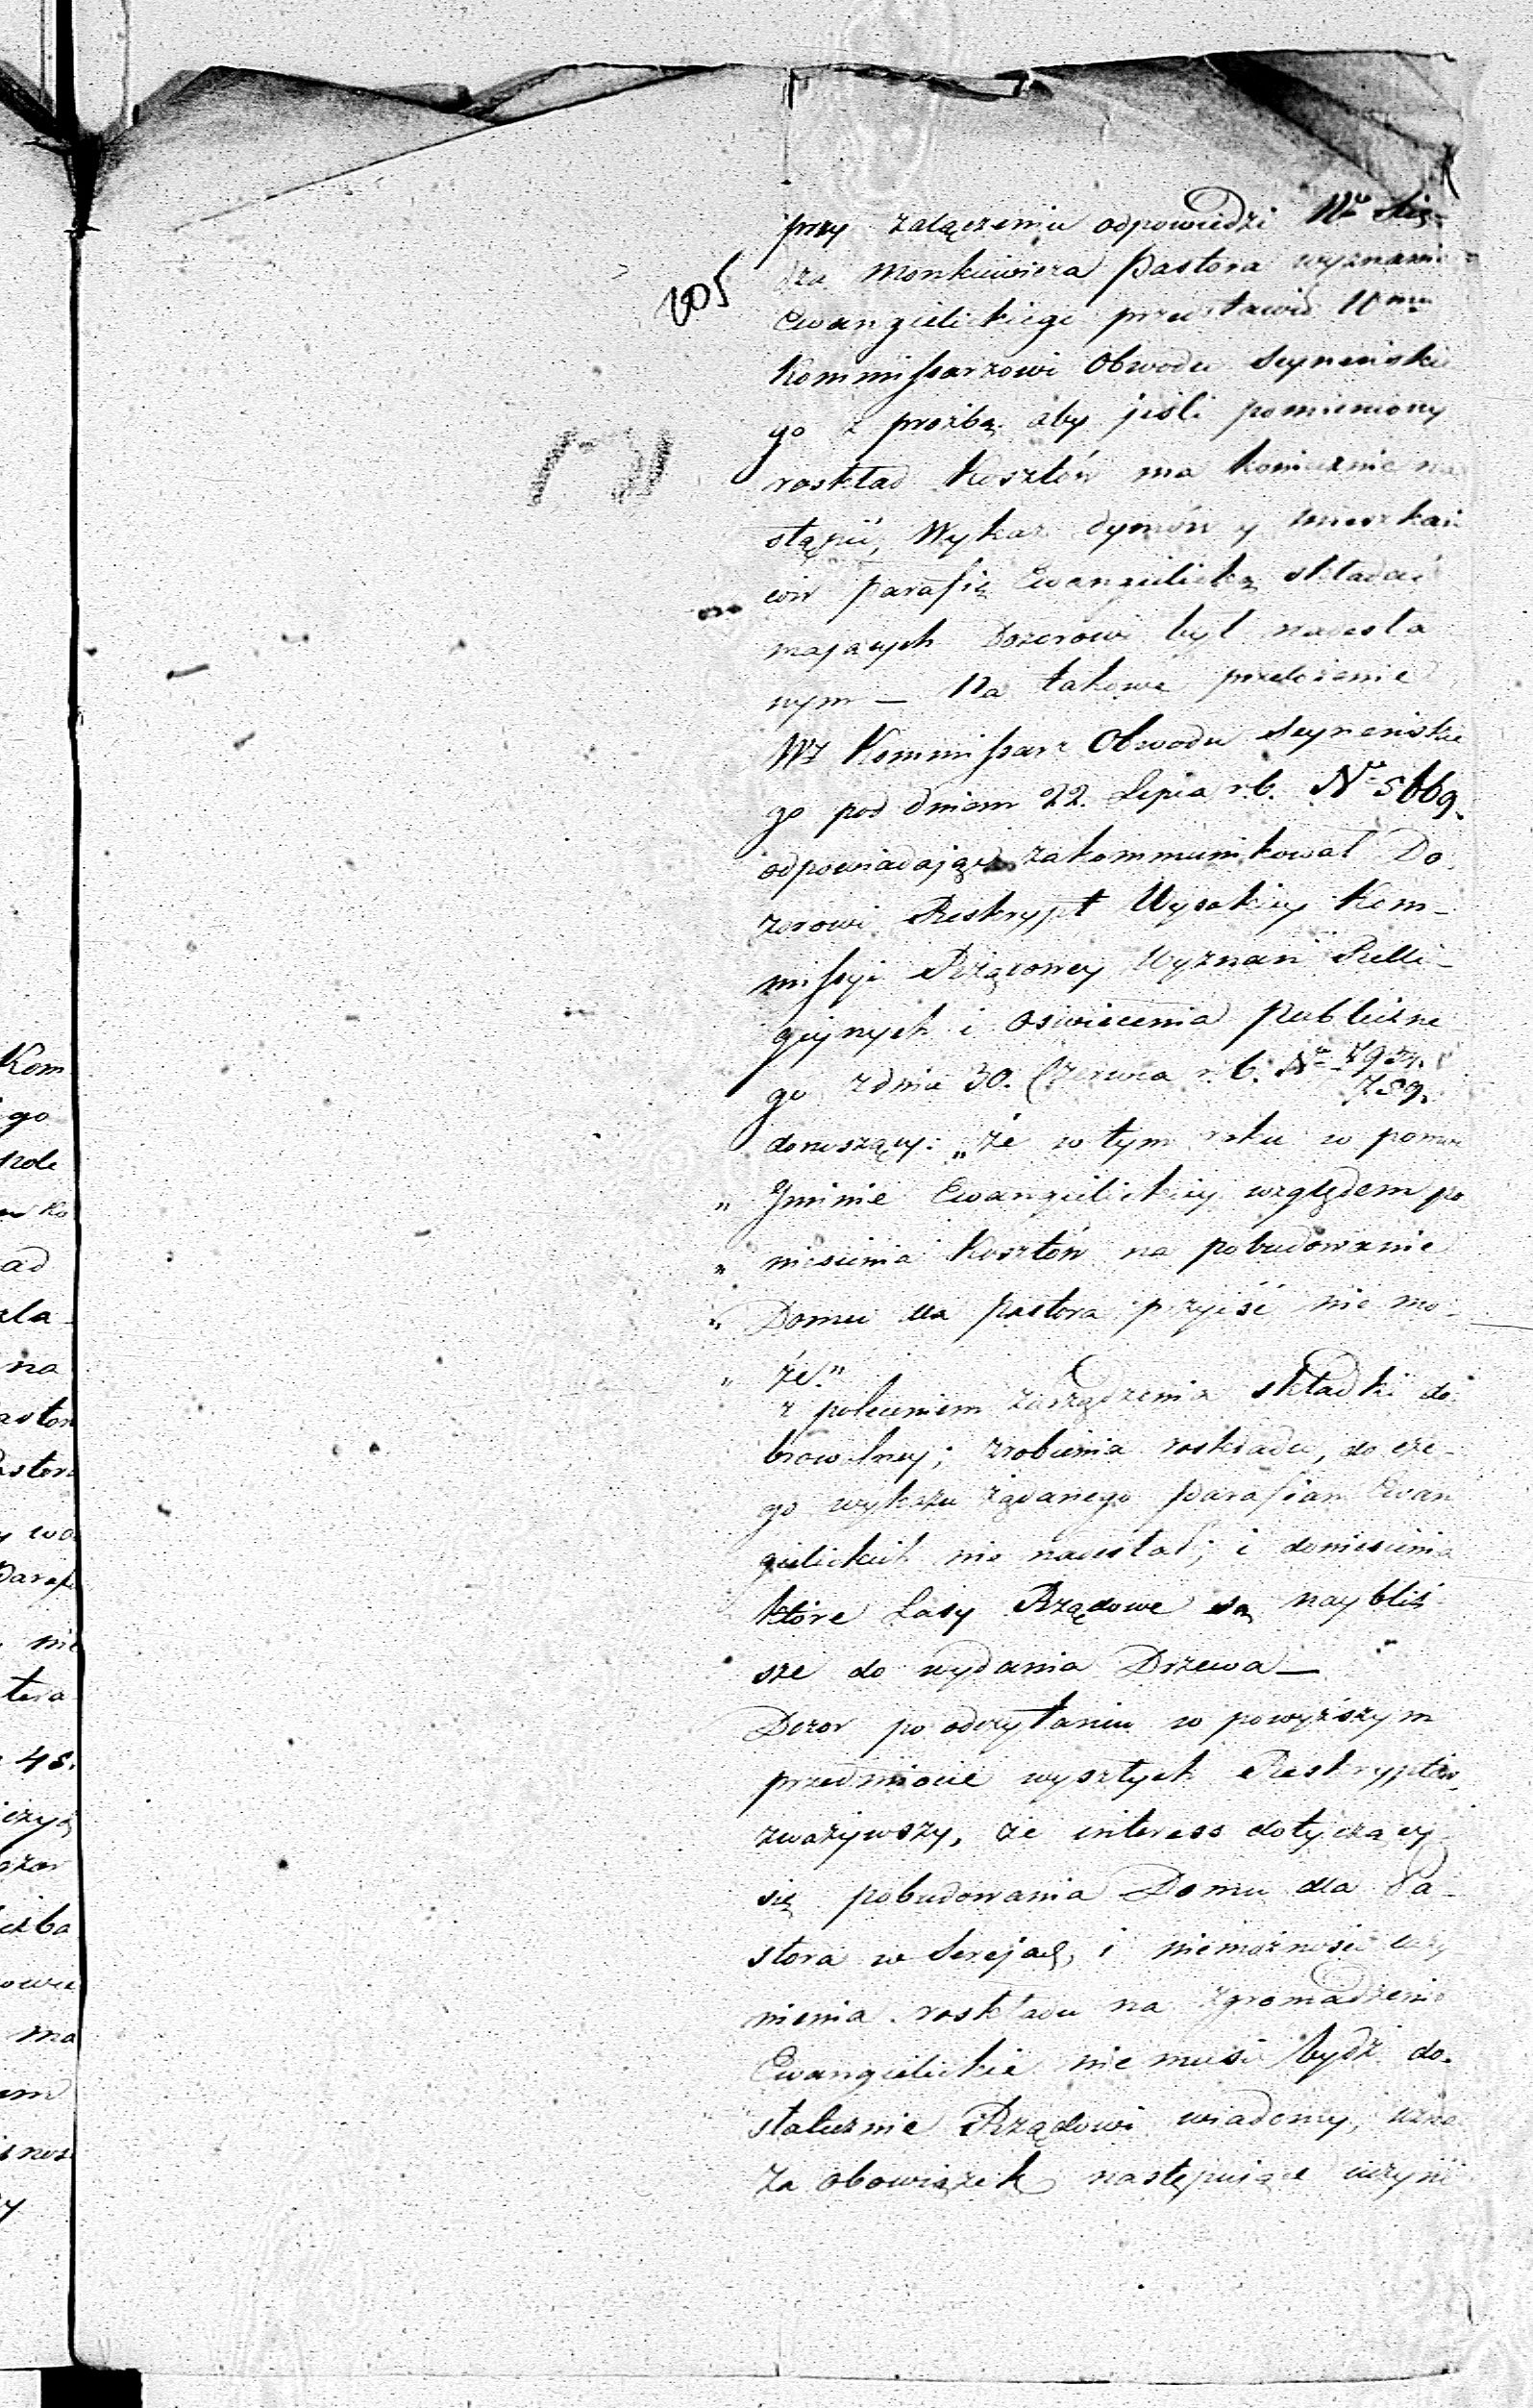 205
przy załączeniu odpowiedzi Wo Xię-
dza Monkiewicza Pastora wyznani
Ewangielickiego przedstawił Wmu
Kommissarzowi Obwodu Seyneńskie
go z prożbą aby jeśli pomieniony
roskład Kosztów ma koniecznie na
stąpić, Wykaz dymów y mieszkań
ców parafię Ewangielicką składać
mających Dozorowi był nadesła
nym — Na takowe przełożenie
WJ Kommissarz Obwodu Seyneńskie
go pod dniem 22. Lipca r.b. No 5669.
odpowiadając zakommunikował Do
zorowi Reskrypt Wysokiey Kom-
missyi Rządowey Wyznań Relli-
giynych i Oswiecenia Publiczne
go z dnia 30. Czerwca r.b. No
789.
donoszący: „że w tym roku w pomo
„ Gminie Ewangielickiey względem po
„ niesienia Kosztów na pobudowanie
„ Domu dla Pastora przyiść nie mo-
„ że."
z poleceniem zarządzenia składki do
browolney; zrobienia roskładu, do cze-
go wykazu żądanego Parafian Ewan
gielickich nie nadesłał; i doniesienia
które Lasy Rządowe są naybliż
sze do wydania Drzewa —
Dozor po odczytaniu w powyższym
przedmiocie wyszłych Reskryptów,
zważywszy, że interess dotyczący
się pobudowania Domu dla Pa-
stora w Serejach, i niemożność uczy
nienia roskładu na zgromadzenie
Ewangielickie nie musi bydź do-
statecznie Rządowi wiadomy, uzna
za obowiązek następujące uczynić
Kom
go
ad
na
Pastora
nie
48.
ma